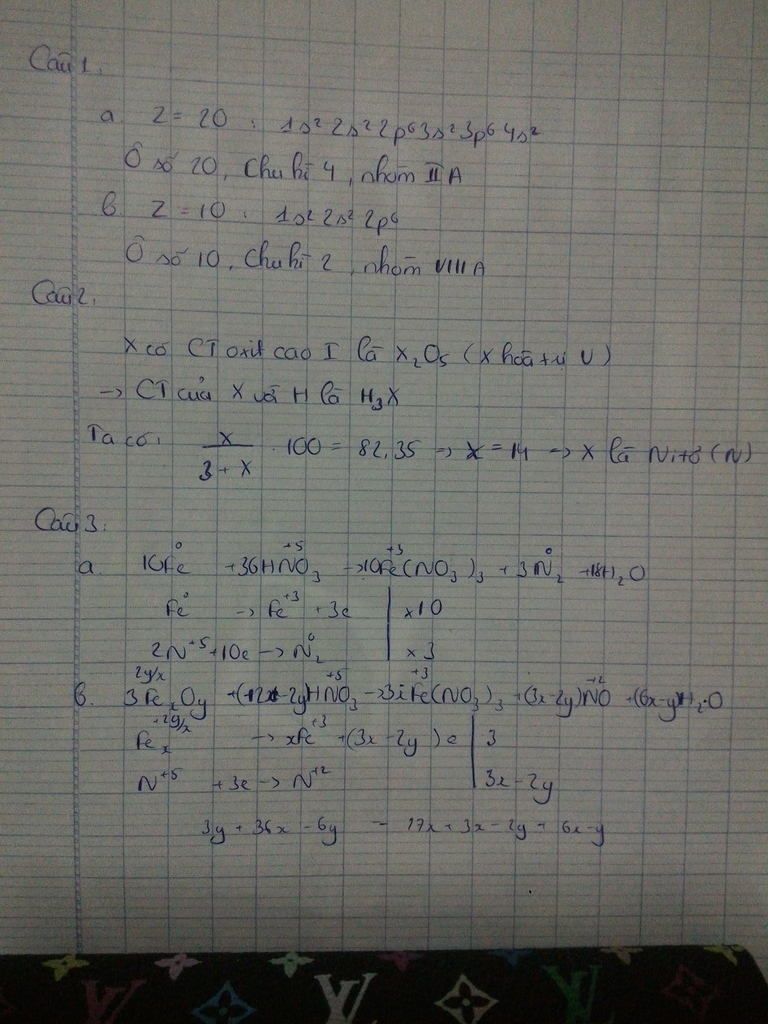 Câu 1.
a Z = 20 : 1s² 2s² 2p⁶ 3s² 3p⁶ 4s²
Ô số 20, Chu kì 4, nhóm II A
b Z = 10 : 1s² 2s² 2p⁶
Ô số 10, Chu kì 2, nhóm VIII A
Câu 2.
X có CT oxit cao I là X₂O₅ (X hoá trị V)
→ CT của X với H là H₃X
Ta có: X/(3 + X) . 100 = 82,35 → X = 14 → X là Nitơ (N)
Câu 3.
0 +5 +3 0
a. 10Fe + 36HNO₃ → 10Fe(NO₃)₃ + 3N₂ + 18H₂O
Fe⁰ → Fe⁺³ + 3e | x10
2N⁺⁵ + 10e → N₂⁰ | x3
2y/x +5 +3 +2
b. 3FeₓOy + (12x-2y)HNO₃ → 3xFe(NO₃)₃ + (3x-2y)NO + (6x-y)H₂O
Feₓ⁺²ʸ/ˣ → xFe⁺³ + (3x-2y)e | 3
N⁺⁵ + 3e → N⁺² | 3x-2y
3y + 36x - 6y = 27x + 3x - 2y + 6x - y
LV
LV
LV